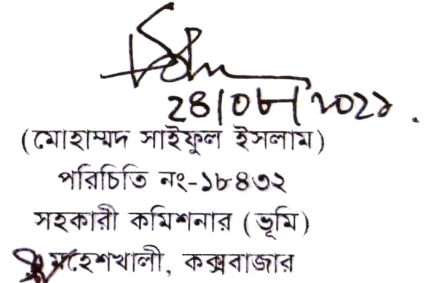 (মোহাম্মদ সাইফুল ইসলাম)
পরিচিতি নং-১৮৪৩২
সহকারী কমিশনার (ভূমি)
মহেশখালী, কক্সবাজার